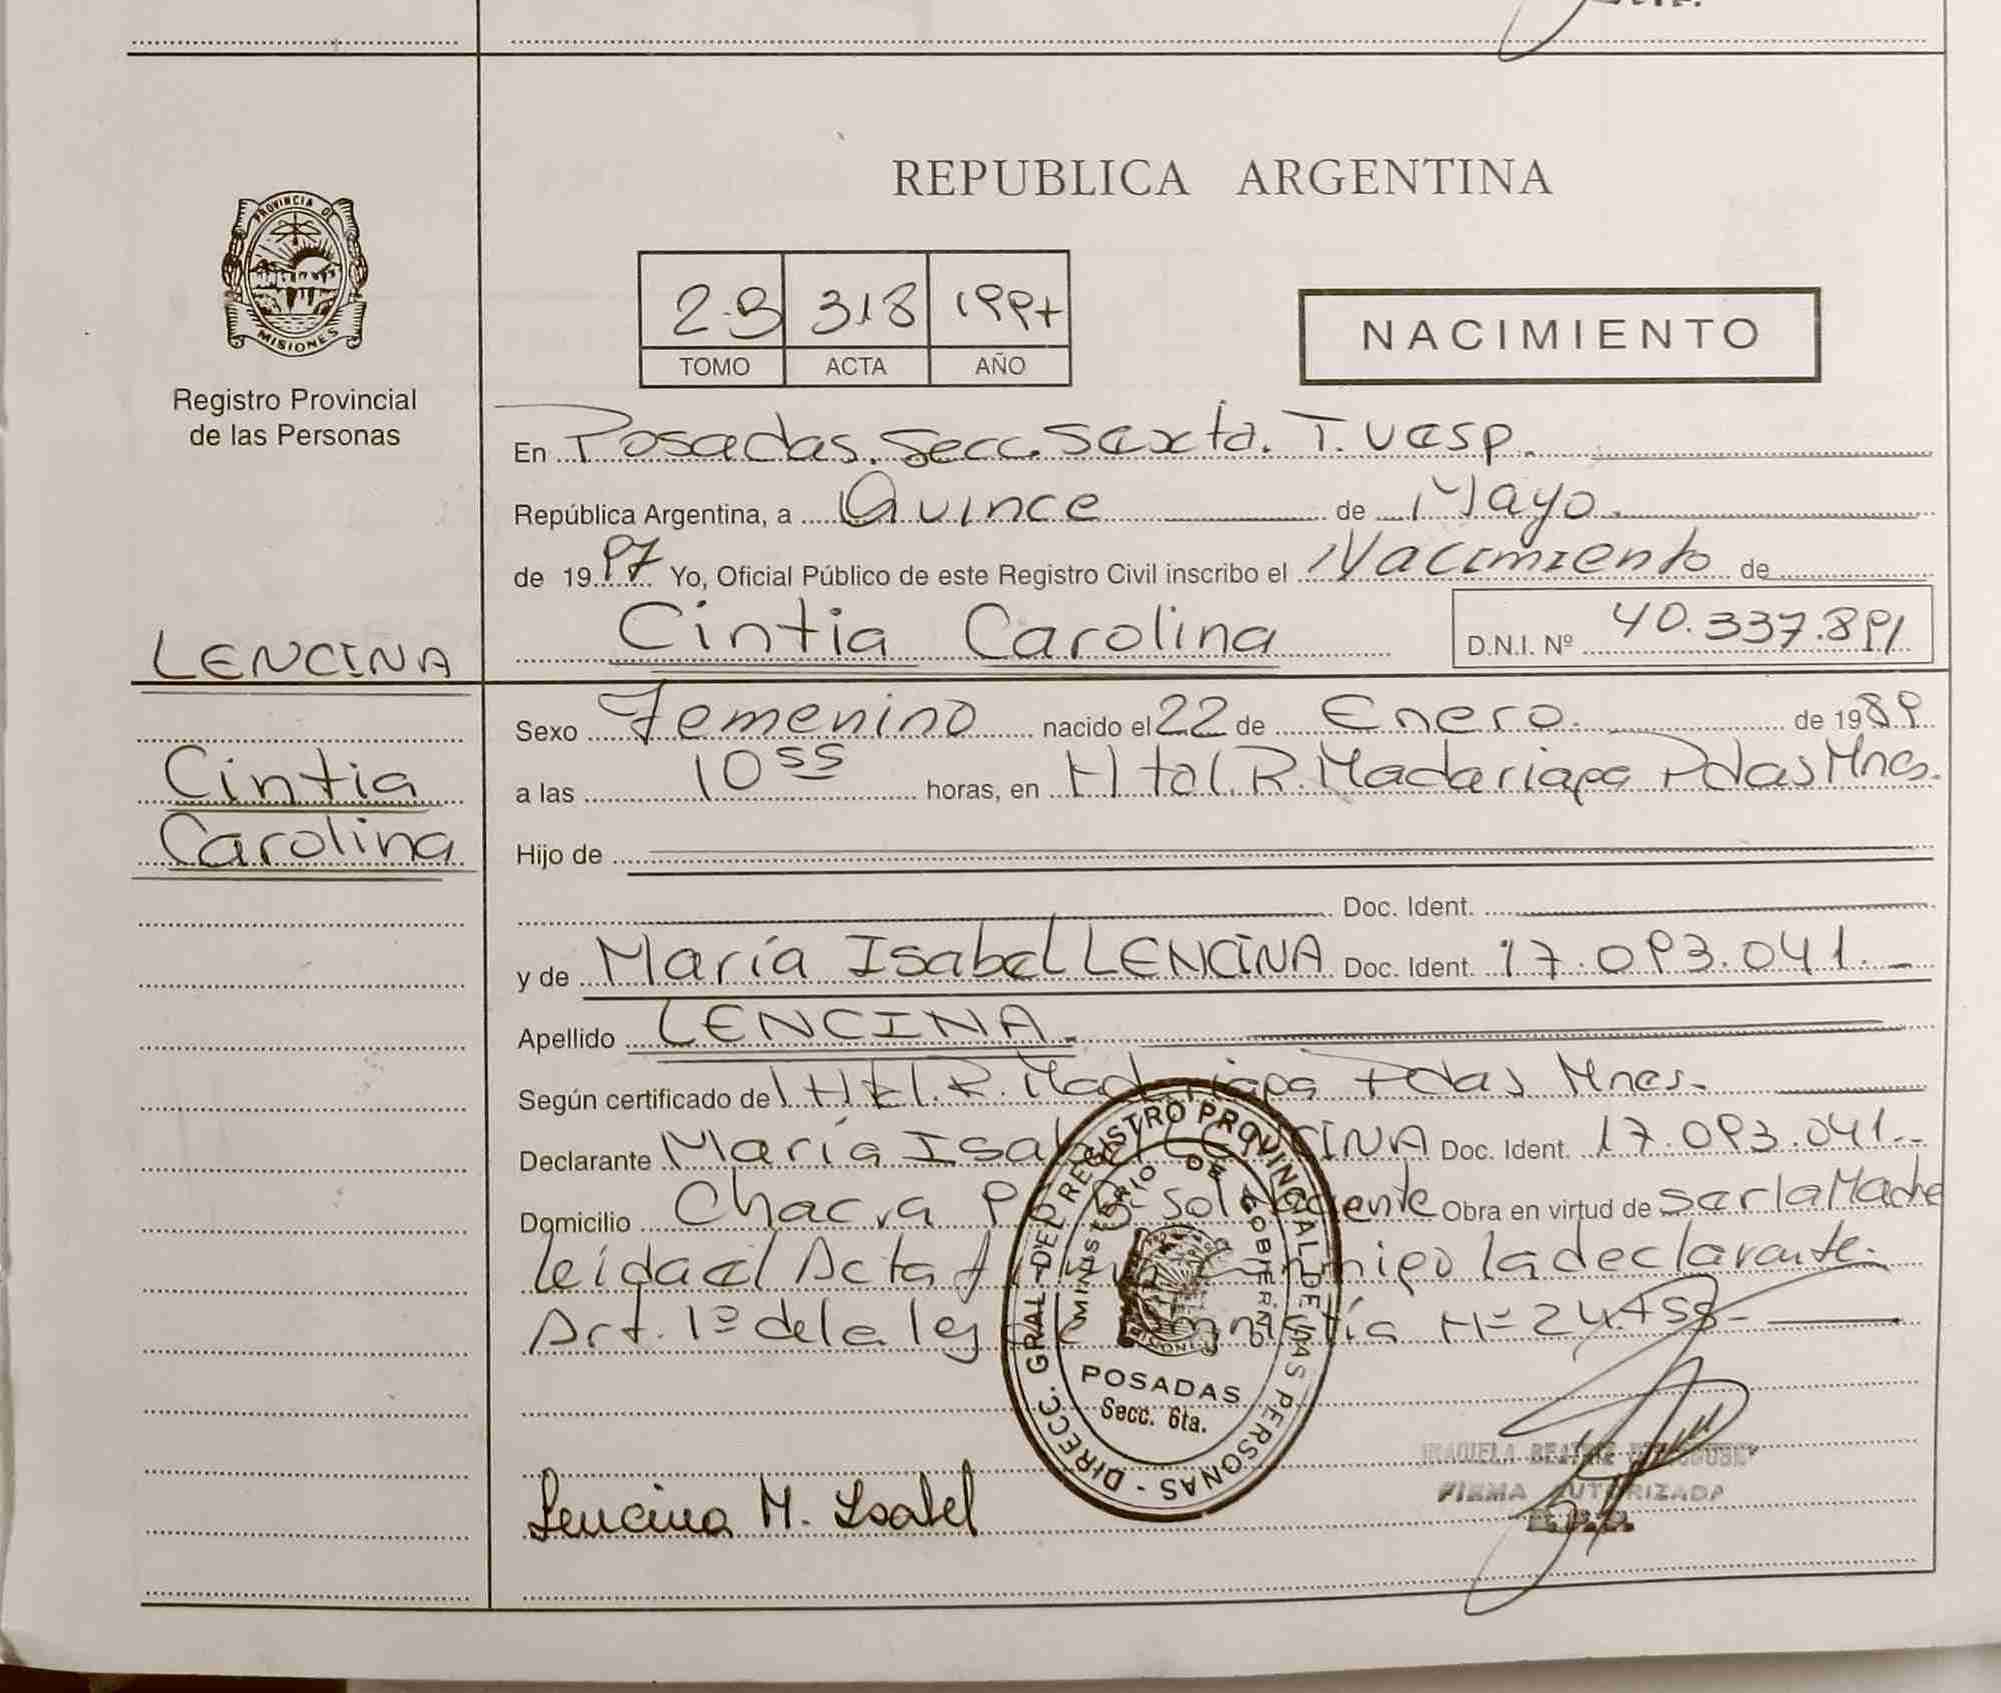 REPUBLICA ARGENTINA
PROVINCIA DE
MISIONES
Registro Provincial
de las Personas
318 1997
TOMO ACTA AÑO
NACIMIENTO
En Posadas. Secc. Sexta. T. Vesp.
República Argentina, a Quince de Mayo.
de 1997 Yo, Oficial Público de este Registro Civil inscribo el Nacimiento de
Cintia Carolina D.N.I. Nº 40.337.891
LENCINA
Cintia
Carolina
Sexo Femenino nacido el 22 de Enero. de 1989
a las 10 55 horas, en Htal. R. Madariaga Pdas Mnes.
Hijo de
Doc. Ident.
y de María Isabel LENCINA Doc. Ident. 17.093.041.
Apellido LENCINA.
Según certificado del Htal. R. Madariaga Pdas Mnes.
Declarante María Isabel LENCINA Doc. Ident. 17.093.041.-
Domicilio Chacra Obra en virtud de ser la Madre
leida el Acta conmigo la declarante.
Art. 1º de la ley de Amnistía Nº 24.755-
DIRECC. GRAL. DEL REGISTRO PROVINCIAL DE LAS PERSONAS -
MINISTERIO DE GOBIERNO
POSADAS
Secc. 6ta.
Lencina M. Isabel
BEATRIZ
FIRMA AUTORIZADA